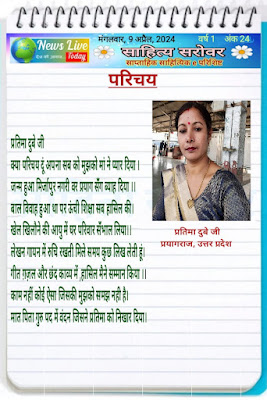 News Live
Today
मंगलवार, 9 अप्रैल, 2024 वर्ष 1 अंक 24
साहित्य सरोवर
साप्ताहिक साहित्यिक e परिशिष्ट
परिचय
प्रतिमा दुबे जी
क्या परिचय दूं अपना सब को मुझको मां ने प्यार दिया।
जन्म हुआ मिर्जापुर नगरी वर प्रयाग संग ब्याह दिया।।
बाल विवाह हुआ था पर ऊंची शिक्षा सब हासिल की।
खेल खिलोने की आयु में घर परिवार सँभाल लिया।।
लेखन गायन में रुचि रखती मिले समय कुछ लिख लेती हूं।
गीत ग़ज़ल और छंद काव्य में ,हासिल मैने सम्मान किया।।
काम नहीं कोई ऐसा जिसकी मुझको समझ नही है।
मात पिता गुरु पद में वंदन जिसने प्रतिमा को निखार दिया।
प्रतिमा दुबे जी
प्रयागराज, उत्तर प्रदेश